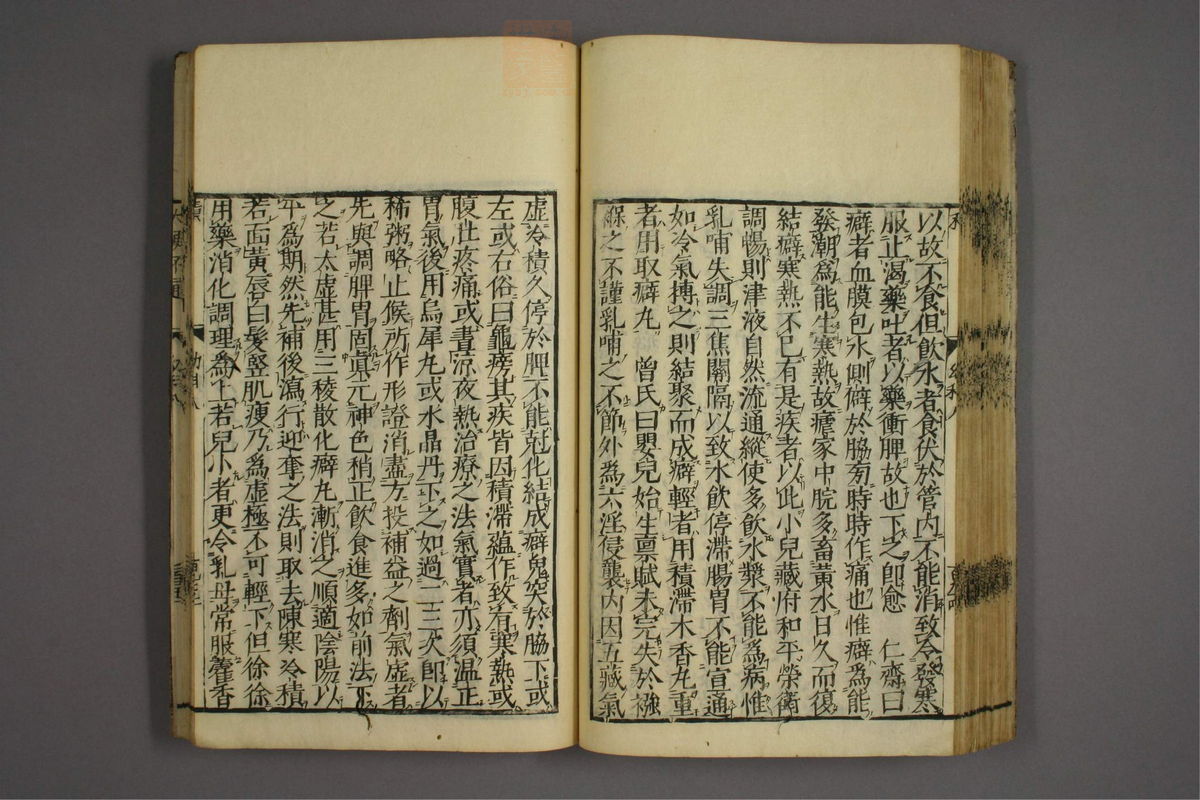 以故不食但飲水者食伏於管内不能消致令發寒
服止渴藥吐者以藥衝脾故也下之即愈　仁齋曰
癖者血膜包水側癖於脇旁時時作痛也惟癖爲能
發潮爲能生寒熱故瘧家中脘多畜黃水日久而復
結癖寒熱不已有是疾者以此小兒藏府和平榮衛
調暢則津液自然流通縱使多飲水漿不能爲病惟
乳哺失調三焦關隔以致水飲停滯腸胃不能宣通
如冷氣搏之則結聚而成癖輕者用積滯木香丸重
者用取癖丸　曾氏曰嬰兒始生禀賦未完失於襁
緥之不謹乳哺之不節外為六淫侵襲内因五藏氣
虛冷積久停於脾不能尅化結成癖㿉突於脇下或
左或右俗曰龜癆其疾皆因積滯蘊作致有寒熱或
腹肚疼痛或晝凉夜熱治療之法氣實者亦須温正
胃氣後用烏犀丸或水晶丹下之如過二三次即以
稀粥略止候所作形證消盡方投補益之劑氣虛者
先與調脾胃固眞元神色稍正飲食進多如前法下
之若太虛甚用三稜散化癖丸漸消之順適陰陽以
平爲期然先補後瀉行迎奪之法則取去陳寒冷積
若面黃唇白髮竪肌瘦乃爲虛極不可輕下但徐徐
用藥消化調理爲上若兒小者更令乳母常服藿香